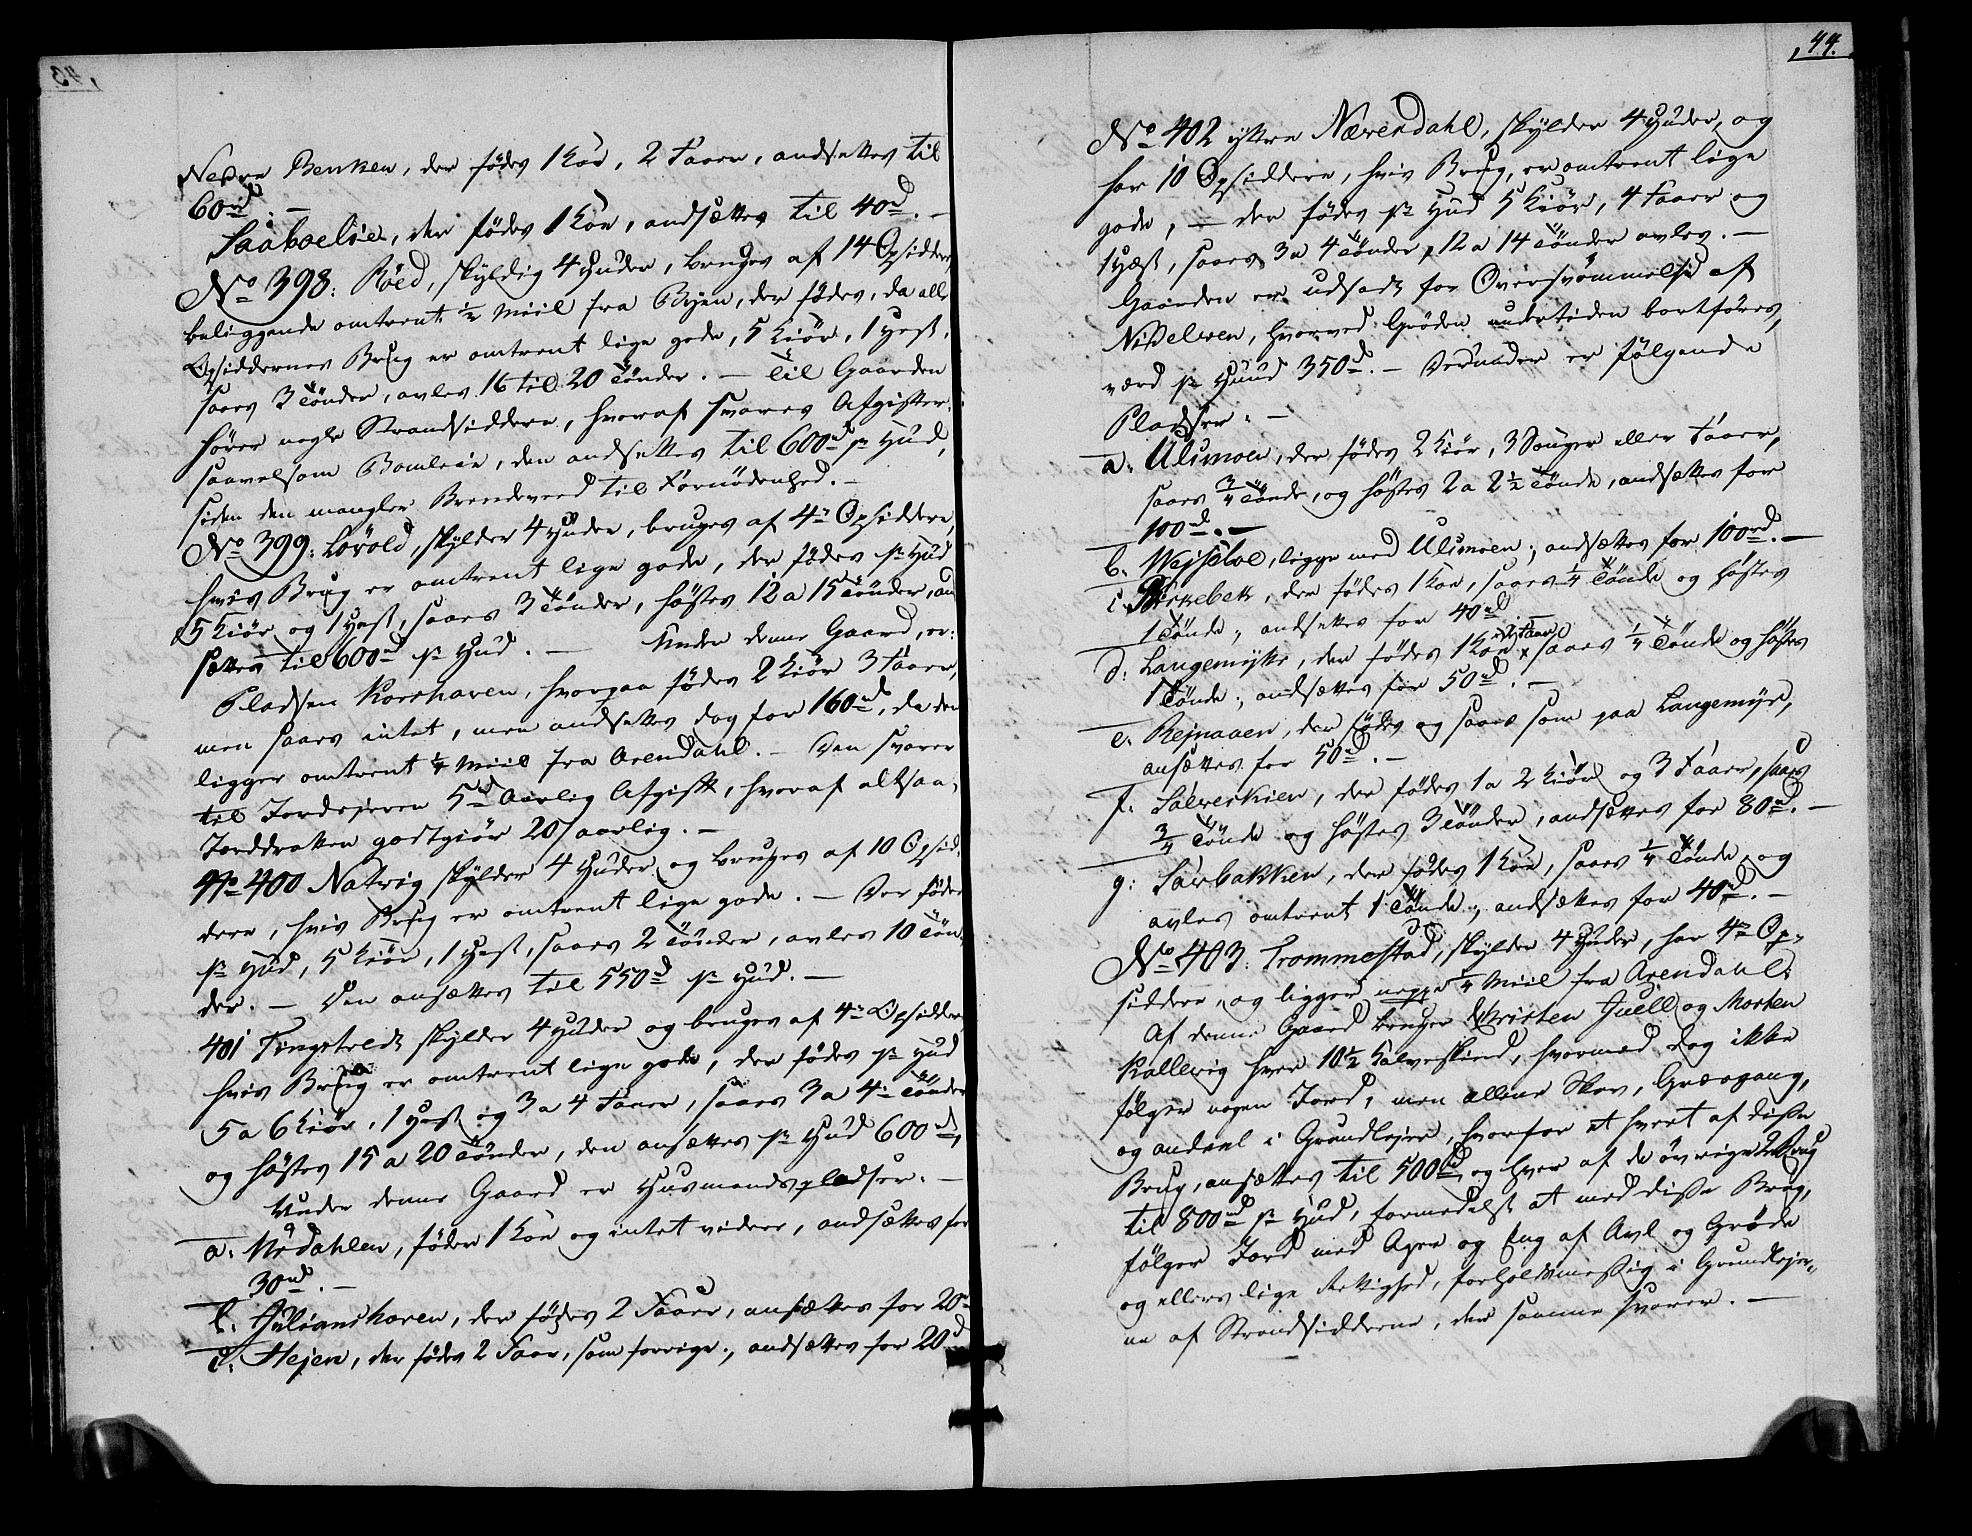 Nedre Benken, der födes 1 Koe, 2 Faarr, andsettes til
60rd. –
Saaboelöe, der födes 1 Koe, andsættes til 40rd. –
No 398: Röed, skyldig 4 Huder, bruges af 14 Opsiddere
beliggende omtrent ½ Miil fra Byen, der födes, da alle
Opsiddernes Brug er omtrent lige gode, 5 Kiör, 1 Hest,
saaes 3 Tönder, avles 16 til 20 Tönder. – Til Gaarden
hörer nogle Strandsiddere, hvoraf svares Afgifter,
saavelsom Bomleie, den andsettes til 600rd pr Hud,
siden den mangler Brendeveed til Fornödenhed. –
No 399: Lövold, skylder 4 Huder, bruges af 4re Opsiddere,
hvis Brug er omtrent lige gode, der födes pr Hud
5 Kiör og 1 Hest, saaes 3 Tönder, höstes 12 a 15 Tönder, an
sættes til 600rd pr Hud. – Under denne Gaard, er:
Pladsen Korshaven, hvorpaa födes 2 Kiör 3 Faarr,
men saaes intet, men andsettes dog for 160rd, da den
ligger omtrent ¼ Miil fra Arendahl. – Den svarer
til Jordejeren 5rd Aarlig Afgift, hvoraf altsaa,
Jorddrotten godtgiör 20/ aarlig. –
No 400 Natvig skylder 4 Huder og bruges af 10 Opsid,
dere, hvis Brug er omtrent lige gode. – Der födes
pr Hud, 5 Kiör, 1 Hest, saaes 2 Tönder, avles 10 Tön
der. – Den ansættes til 550rd pr Hud. –
401 Tingstvedt skylder 4 Huder og bruges af 4re Opsiddere
hvis Brug er omtrent lige gode, der födes pr Hud
5 a 6 Kiör, 1 Hest og 3 a 4 Faarr, saaes 3 a 4re Tönder
og höstes 15 a 20 Tönder, den ansættes pr Hud 600rd,
Under denne Gaard er Husmandspladser. –
a: Medahlen, föder 1 Koe og intet videre, andsættes for
30rd. –
b. Julianshaven, der födes 2 Faarr, ansættes for 20rd
c. Hejen, der födes 2 Faar, som forrige, andsættes for 20rd
44.
No 402 ystre Nævendahl, skylder 4 Huder, og
har 10 Opsiddere, hvis Brug, er omtrent lige
gode, – der födes pr Hud 5 Kiör, 4 Faarr og
1 Hest, saaes 3 a 4 Tönder, 12 a 14 Tönder avles. –
Gaarden er udsadt for Oversvömmelse af
Nidelven, hvorved Gröden undertiden bortföres,
værd pr Huud 350rd. – Derunder er fölgende
Pladser: –
a: Ulsmoen, der födes 2 Kiör, 3 Souger eller Faarr,
saaes ¾ Tönde, og höstes 2 a 2½ Tönde, andsættes for
100rd. –
b. Wejsloe, ligge med Ulsmoen; andsættes for 100rd. –
c. Birkebek, der födes 1 Koe, saaes ¼ Tönde og höstes
1 Tönde, andsettes for 40rd
d: Langemyhr, der födes 1 Koe × 2 Faarr saaes ¼ Tönde og höstes
1 Tönde, andsættes for 50rd. –
e. Rejnaaen, der födes og saaes som paa Langemyr,
ansættes for 50rd. –
f. Sálverkien, der födes 1 a 2 Kiör og 3 Faarr, saaes
¾ Tönde og höstes 3 Tönder, andsættes for 80rd. –
g: Sávbakken, der födes 1 Koe, saaes ¼ Tönde og
avles omtrent 1 Tönde, andsættes for 40rd. –
No 403. Trommestad, skylder 4 Huder, har 4re Op,
siddere, og ligger neppe ¼ Miil fra Arendahl:
Af denne Gaard bruger Christen Juell og Morten
Kallevig hver 10½ Kalveskind, hvormed dog ikke
fölger nogen Jord, men allene Skov, Græsgang,
og andeel i Grundlejer, hvorfor at hvert af disse
Brug, ansættes til 500rd, og hver af de övrige 2 Brug
til 800rd pr Hud, formedelst at med disse Brug,
fölger Jord med Ager og Eng af Avl og Gröde
og ellers lige Rettighed, forholdsmessig i Grundlejer„
ne af Strandsidderne, der samme svarer. –